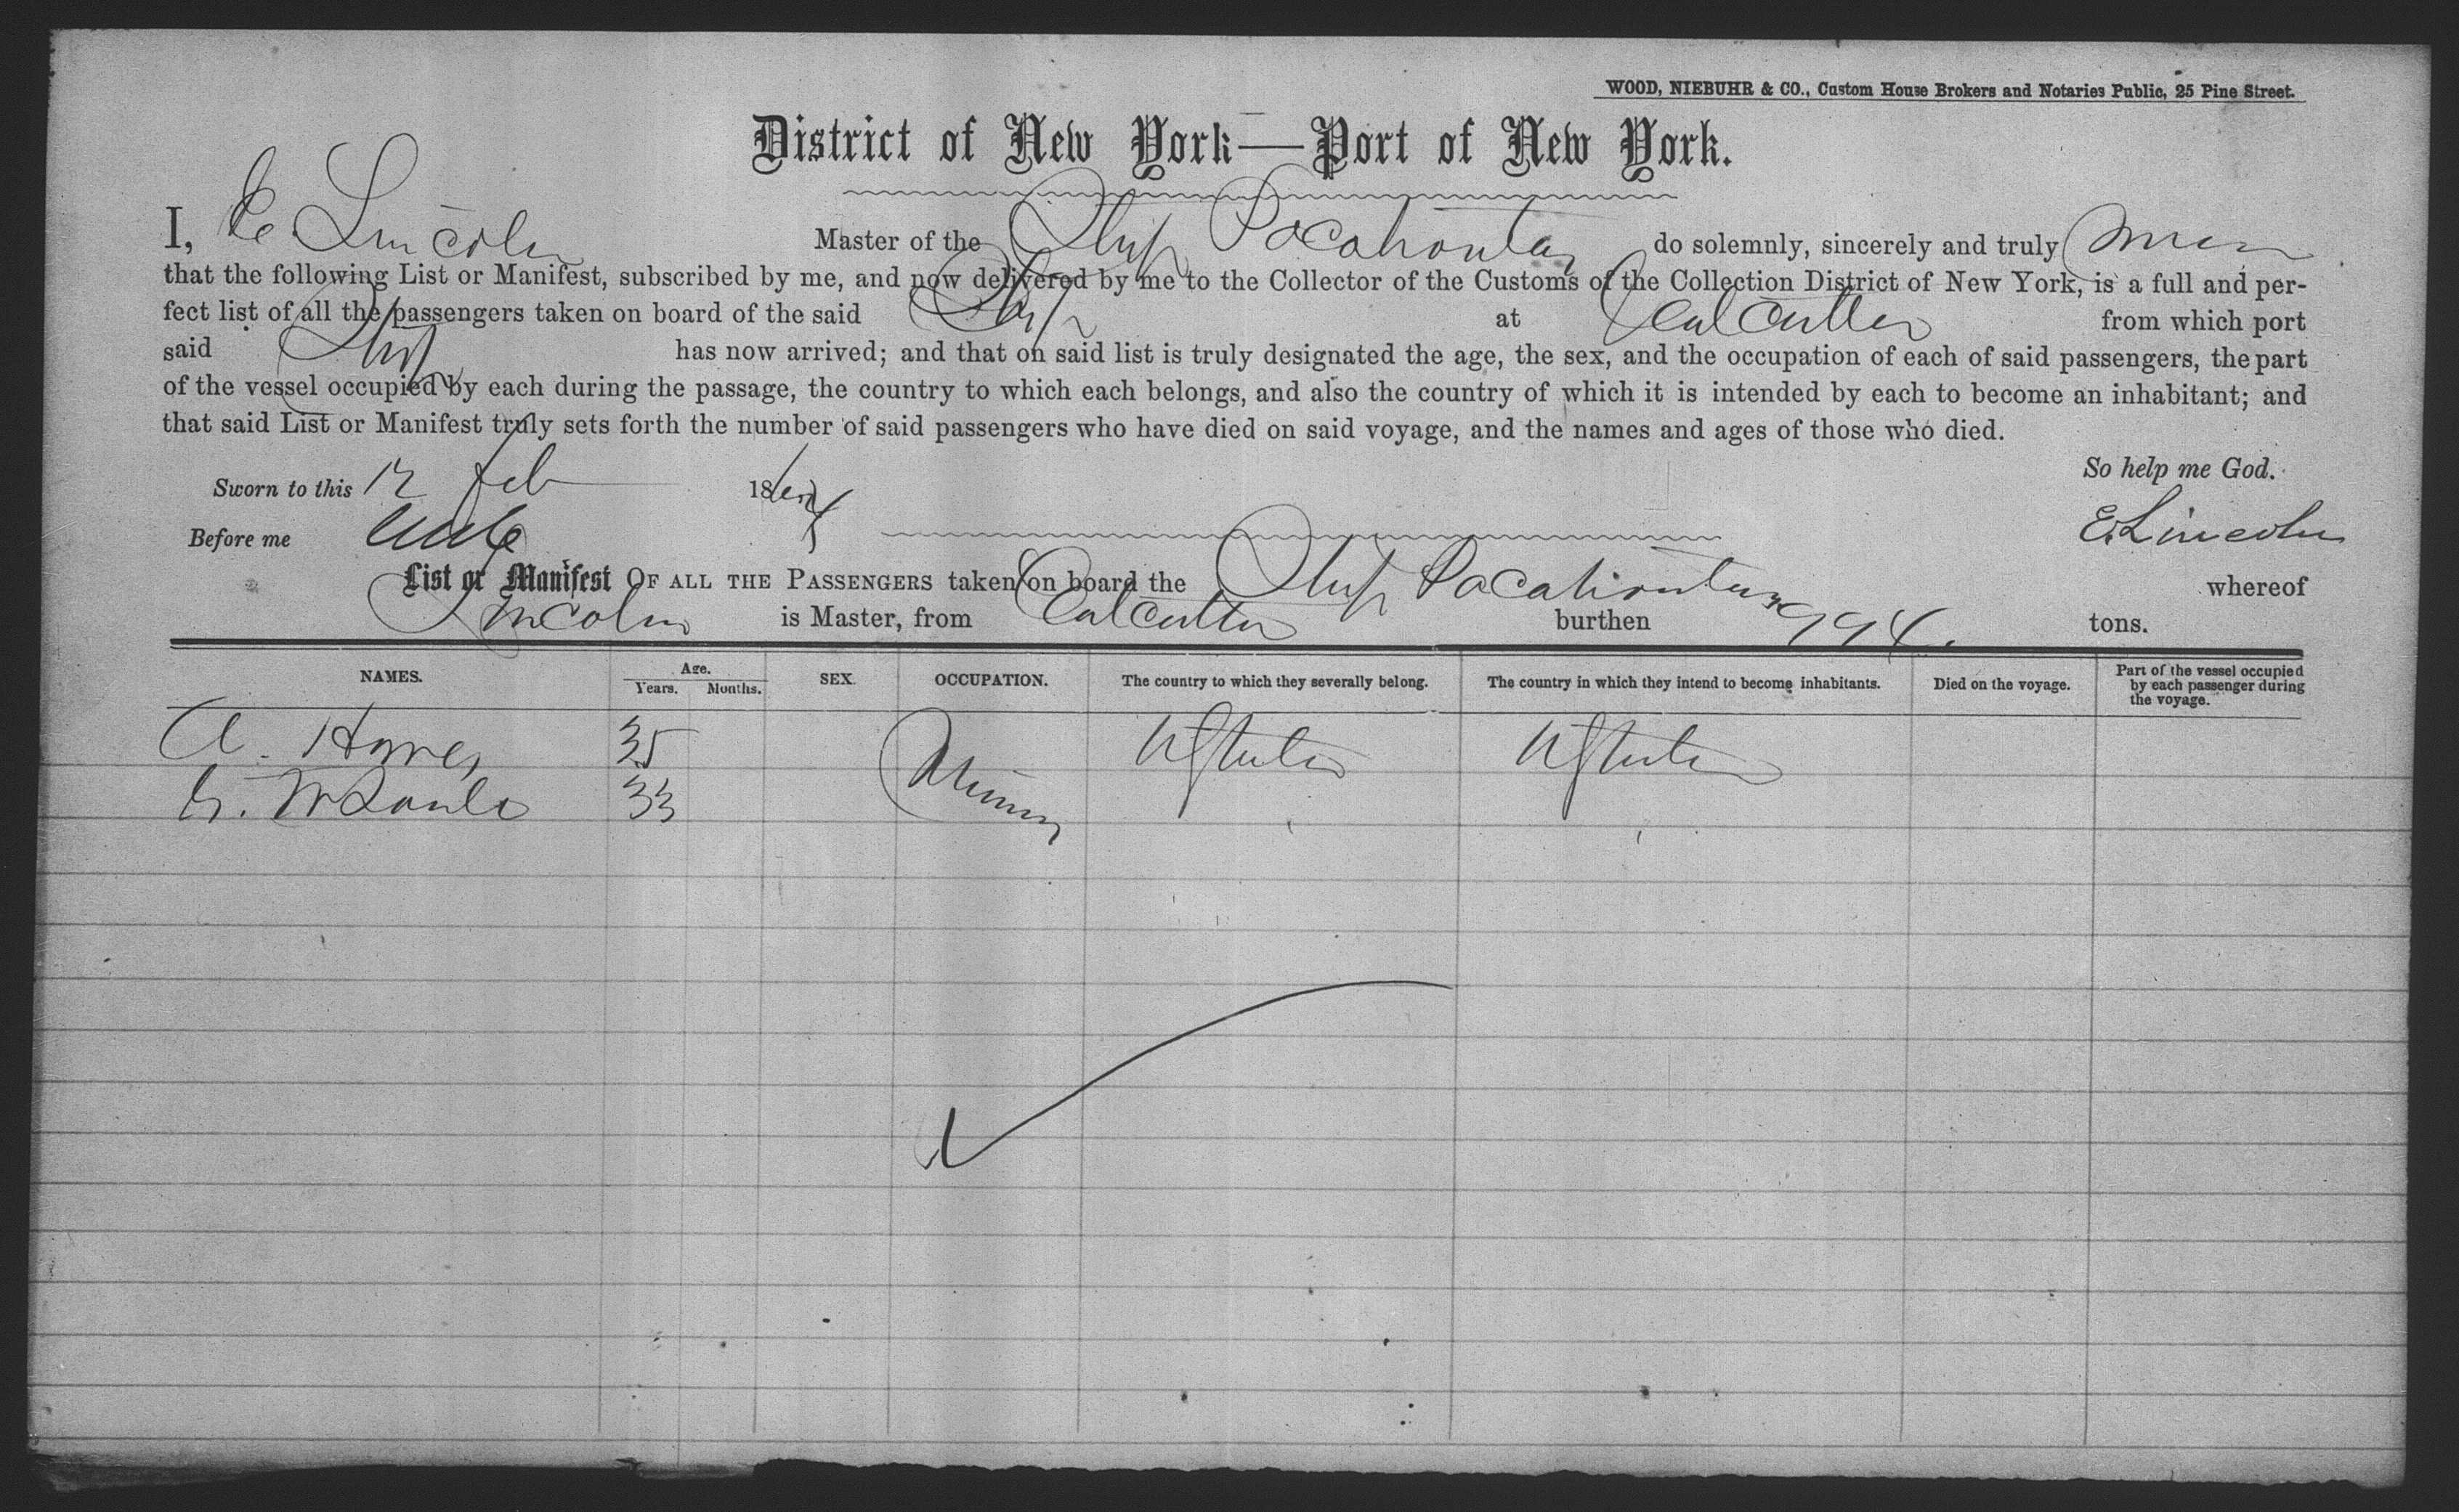 WOOD, NIEBUHR & CO., Custom House Brokers and Notaries Public, 25 Pine Street.
District of New York—Port of New York.
I, E. Lincoln Master of the Ship Pocahontas do solemnly, sincerely and truly swear
that the following List or Manifest, subscribed by me, and now delivered by me to the Collector of the Customs of the Collection District of New York, is a full and per-
fect list of all the passengers taken on board of the said Ship at Calcutta from which port
said Ship has now arrived; and that on said list is truly designated the age, the sex, and the occupation of each of said passengers, the part
of the vessel occupied by each during the passage, the country to which each belongs, and also the country of which it is intended by each to become an inhabitant; and
that said List or Manifest truly sets forth the number of said passengers who have died on said voyage, and the names and ages of those who died.
So help me God.
Sworn to this 12 Feb 18
Before me E. Lincoln
List or Manifest OF ALL THE PASSENGERS taken on board the Ship Pocahontas whereof
Lincoln is Master, from Calcutta burthen 994. tons.
NAMES. Age. Years. Months. SEX. OCCUPATION. The country to which they severally belong. The country in which they intend to become inhabitants. Died on the voyage. Part of the vessel occupied by each passenger during the voyage.
A. Howes 35 Mariner U States U States
33